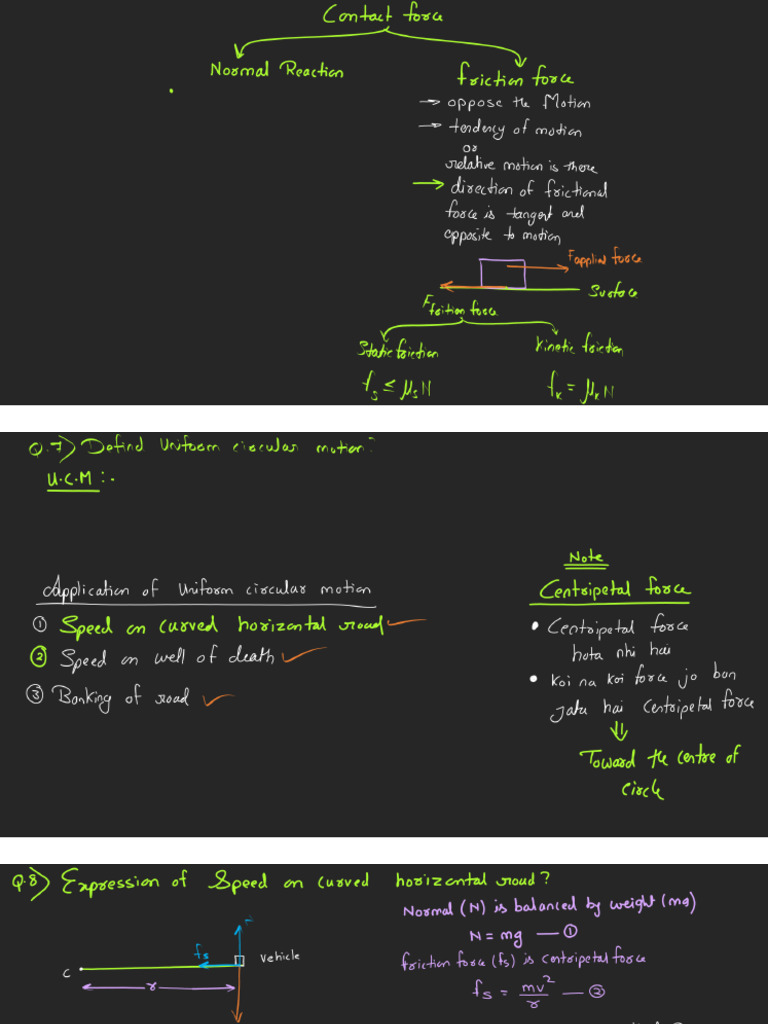 Contact force
Normal Reaction
friction force
→ oppose the Motion
→ tendency of motion
or
relative motion is there
→ direction of frictional
force is tangent and
opposite to motion
Fapplied force
Surface
Ffrition force
Static friction
kinetic friction
fs ≤ μsN
fk = μkN
Q.7) Defind Uniform circular motion?
U.C.M :.
Note
Application of Uniform circular motion
Centripetal force
① Speed on curved horizontal road
• Centripetal force
hota nhi hai
② Speed on well of death
• Koi na koi force jo ban
jata hai centripetal force
③ Banking of road
Toward the centre of
circle
Q.8) Expression of Speed on curved horizontal road?
Normal (N) is balanced by weight (mg)
N = mg — ①
fs
vehicle
friction force (fs) is centripetal force
C
r
fs = mv²/r — ②